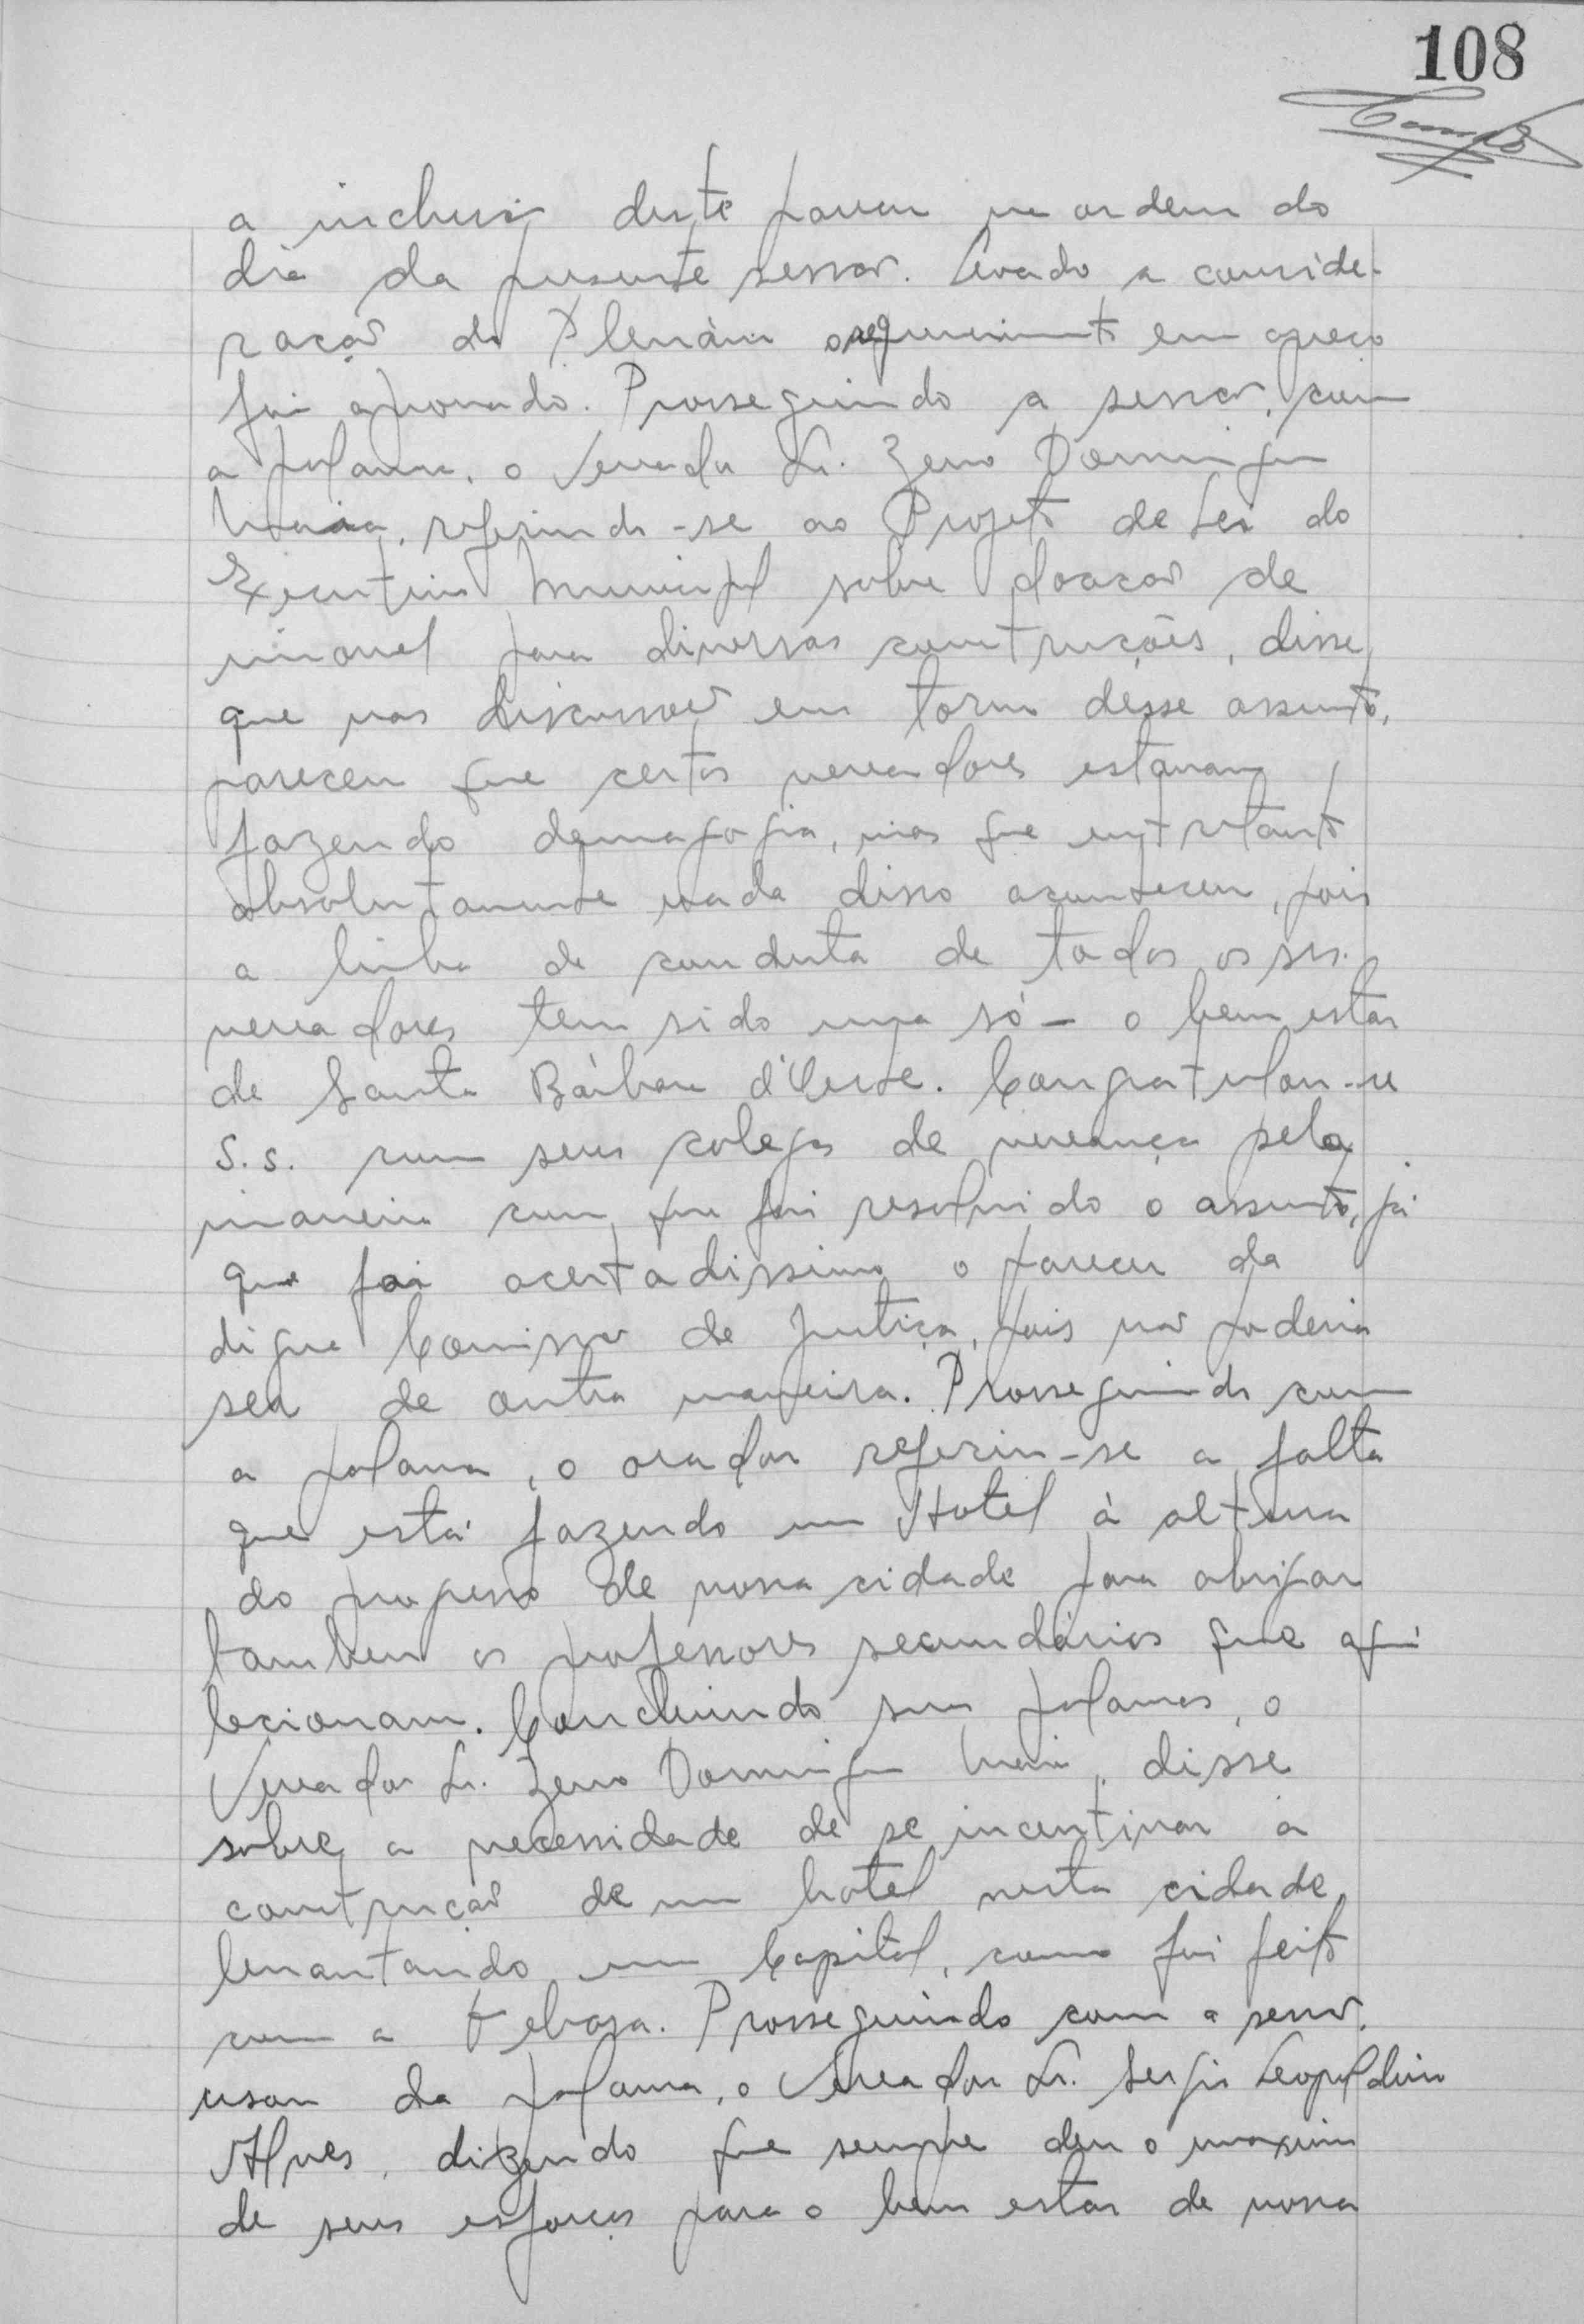 108
a inclusão deste parecer na ordem do
dia da presente sessão. Levado a conside-
ração do Plenário o requerimento em apreço
foi aprovado. Prosseguindo a sessão, com
a palavra, o Vereador Sr. Zeno Domingues
Maia, referindo-se ao Projeto de Lei do
Executivo Municipal sobre doação de
imovel para diversas construções, disse
que nas discussões em torno desse assunto,
pareceu que certos vereadores estavam
fazendo demagogia, mas que entretanto
absolutamente nada disso aconteceu, pois
a linha de conduta de todos os srs.
vereadores tem sido uma só - o bem estar
de Santa Bárbara d'Oeste. Congratulou-se
S.s. com seus colegas de vereança pela
maneira com que foi resolvido o assunto, já
que foi acertadissimo o parecer da
digna Comissão de Justiça, pois não poderia
ser de outra maneira. Prosseguindo com
a palavra, o orador referiu-se a falta
que está fazendo um Hotel à altura
do progresso de nossa cidade para abrigar
tambem os professores secundários que aqui
lecionam. Concluindo suas palavras, o
Vereador Sr. Zeno Domingues Maia, disse
sobre a necessidade de se incentivar a
construção de um hotel nesta cidade,
levantando um Capital, como foi feito
com a Telbasa. Prosseguindo com a sessão,
usou da palavra, o Vereador Sr. Sergio Leopoldino
Alves, dizendo que sempre deu o maximo
de seus esforços para o bem estar de nossa